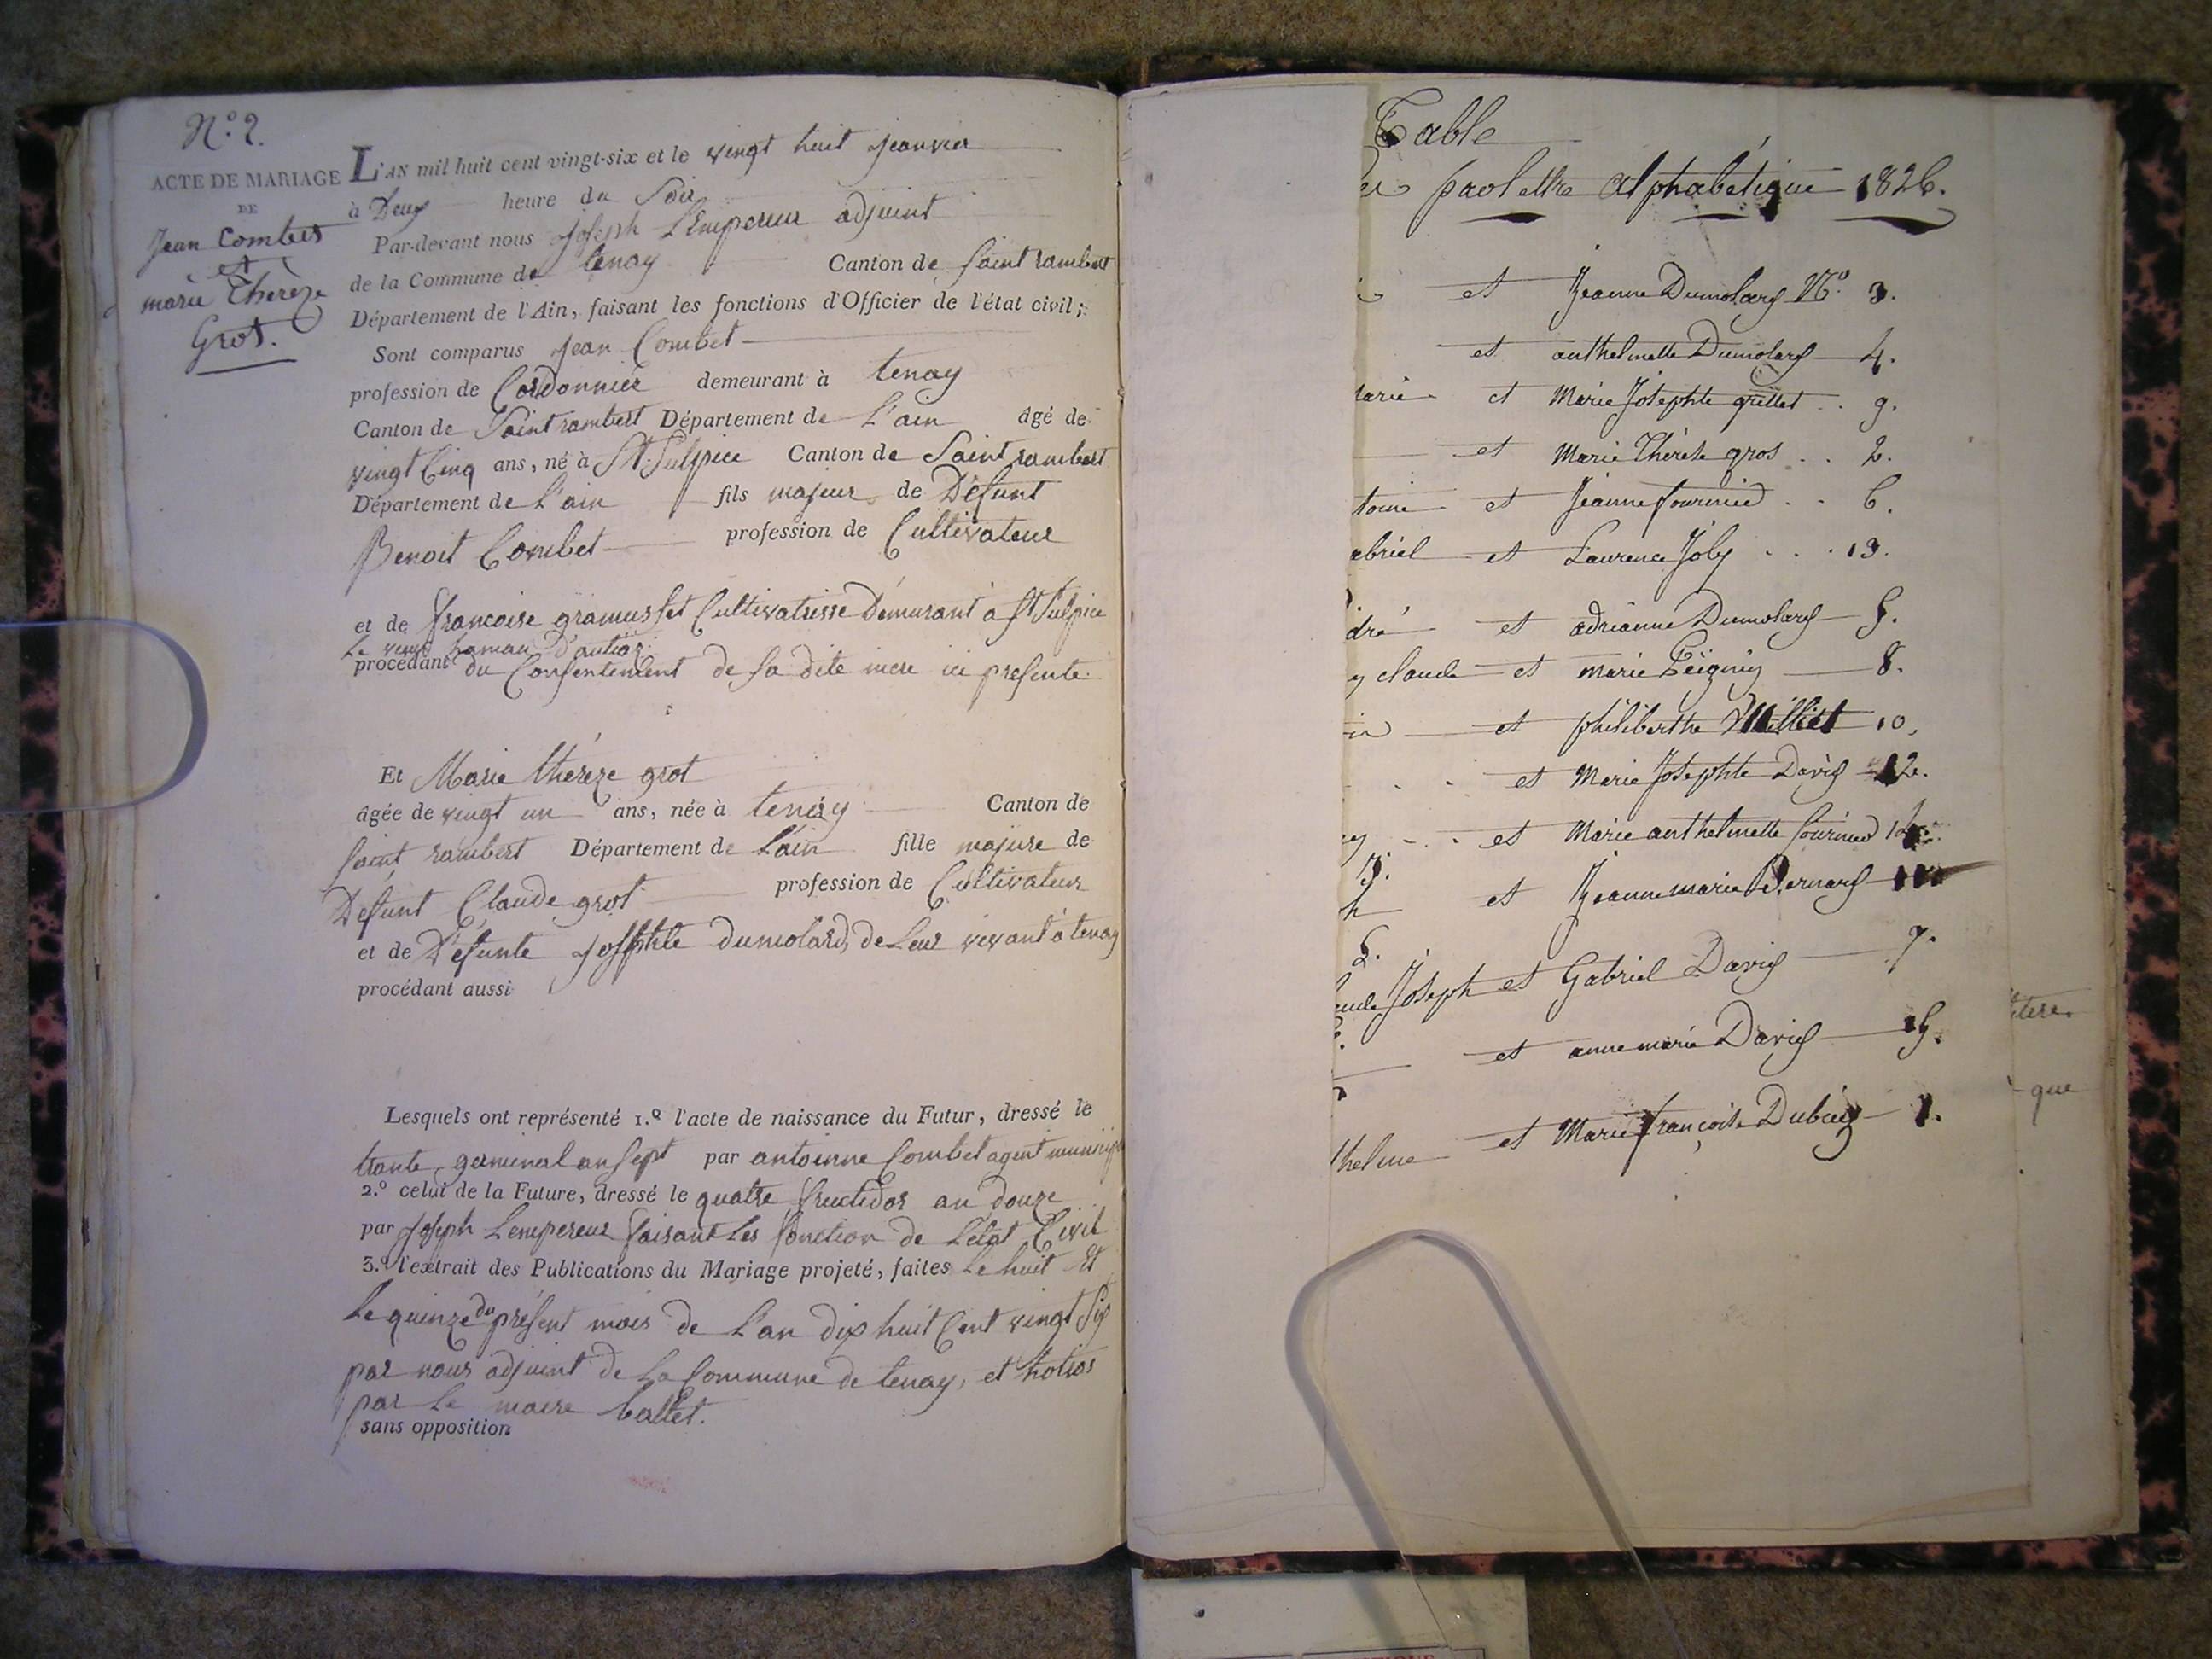 N.º 2.
ACTE DE MARIAGE
DE
Jean Combet
et
marie Thérèze
Grot.
L'AN mil huit cent vingt-six et le vingt huit jeanvier
à Deux heure du Soir
Par-devant nous Joseph Lempereur adjoint
de la Commune de tenay Canton de Saint rambert
Département de l'Ain, faisant les fonctions d'Officier de l'état civil;
Sont comparus Jean Combet
profession de Cordonnier demeurant à tenay
Canton de Saint rambert Département de L'ain âgé de
vingt Cinq ans, né à St. Sulpice Canton de Saint rambert
Département de L'ain fils majeur de Défunt
Benoit Combet profession de Cultivateur
et de francoise gramusset Cultivatrisse Demurant à St Sulpice
procédant du Consentement de sa dite mere ici presente
Et Marie thérèze grot
âgée de vingt un ans, née à tenay Canton de
Saint rambert Département de L'ain fille majure de
Défunt Claude grot profession de Cultivateur
et de Défunte Josephte dumolard, de Leur vivant à tenay
procédant aussi
Lesquels ont représenté 1.º l'acte de naissance du Futur, dressé le
trante germinal an Sept par antoinne Combet agent
2.º celui de la Future, dressé le quatre fructidor an douze
par Joseph Lempereur faisant Les fonction de L'état Civil
3.º l'extrait des Publications du Mariage projeté, faites Le huit Et
Le quinze du présent mois de L'an dix huit Cent vingt Six
par nous adjoint de La Commune de tenay, et
par Le maire Callet.
sans opposition
Table
par lettre alphabétique 1826.
et Jeanne Dumolard N.º 3.
et anthelmette Dumolard 4.
marie et Marie Josephte grillet . . 9.
et Marie Thérèse gros . . 2.
toine et Jeanne fournier . . 6.
abriel et Laurence Joly . . . 13.
dré et adrianne Dumolard 5.
y claude et marie 8.
et philiberthe Milliet 10.
et Marie Josephte David 12.
et Marie anthelmette fournier
J.
h et Jeanne marie Bernard
L.
aude Joseph et Gabriel David 7.
et anne marie David
thelme et Marie françoise Dubuis 1.
que